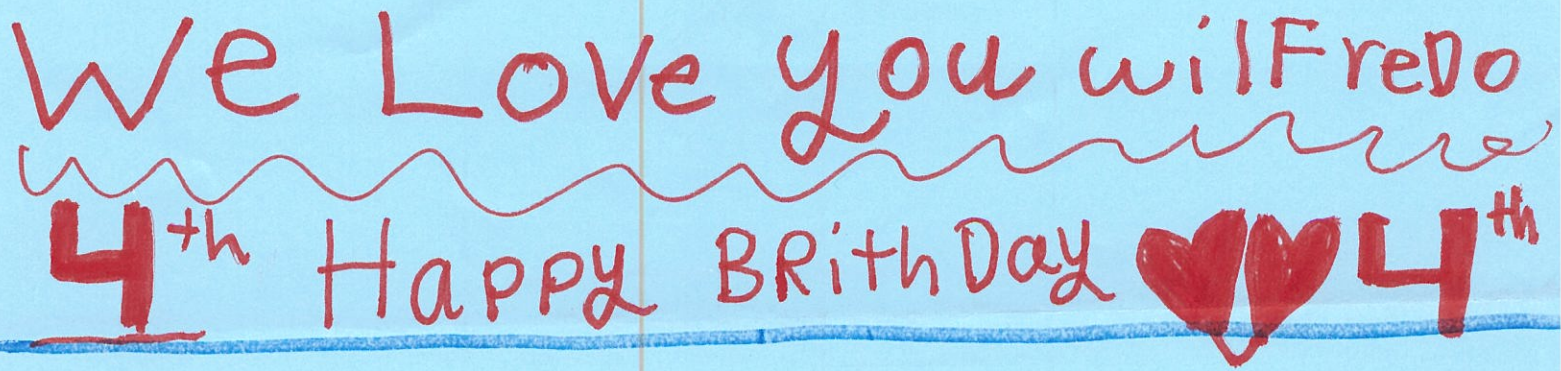 We Love you wilFreDo
4th Happy BRithDay 4th